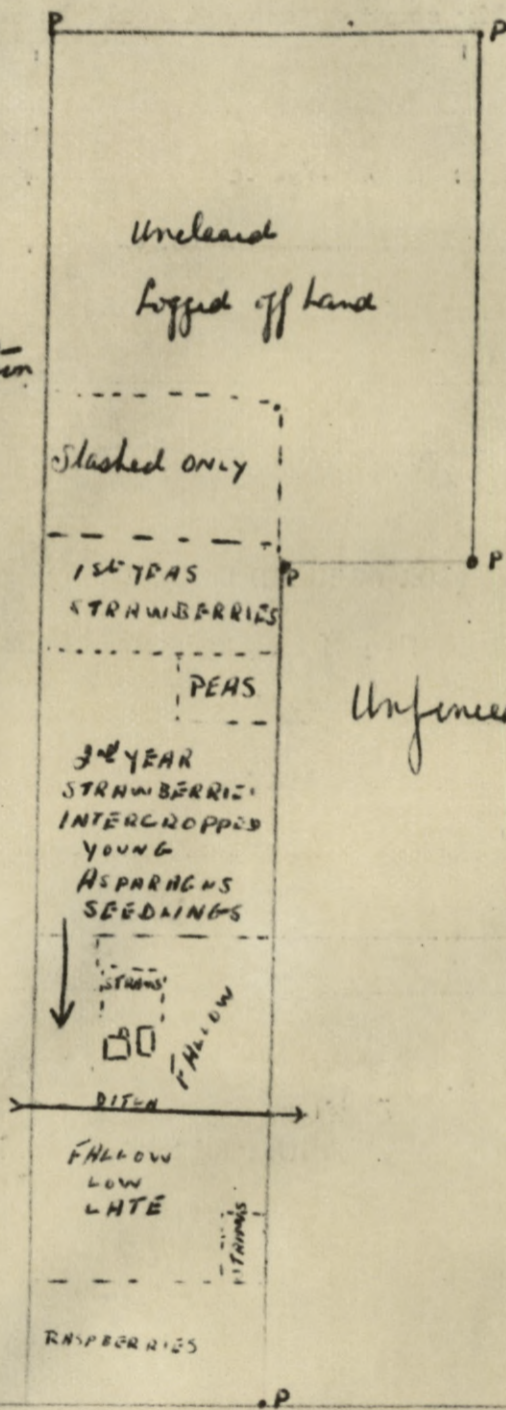 P P
Uncleard
Logged off Land
Slashed ONLY
P P
1st YEAS
STRAWBERRIES
PEAS
YEAR
STRAWBERRIE
INTERCROPPED
YOUNG
ASPARAGUS
SEEDLINGS
STRAWS
FALLOW
DITCH
FALLOW
LOW
LATE
RASPBERRIES
P